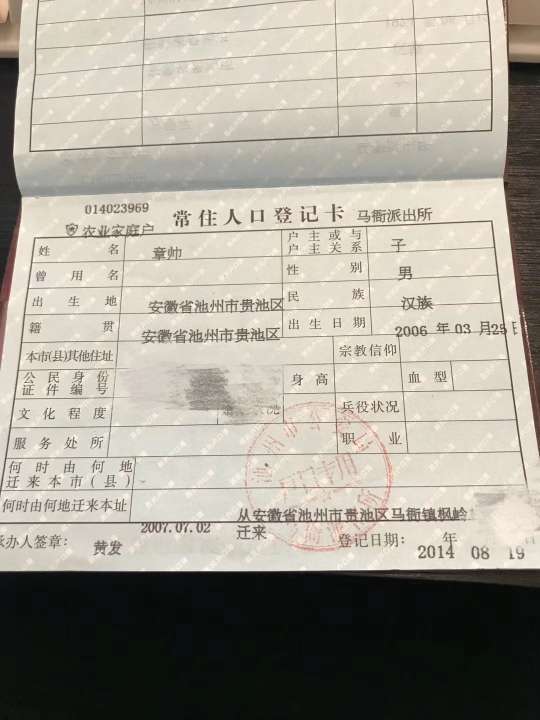 014023969
常住人口登记卡 马衙派出所
农业家庭户
姓名 章帅 户主或与户主关系 子
曾用名 性别 男
出生地 安徽省池州市贵池区 民族 汉族
籍贯 安徽省池州市贵池区 出生日期 2006 年 03 月25日
本市(县)其他住址 宗教信仰
公民身份证件编号 身高 血型
文化程度 兵役状况
服务处所 职业
何时由何地迁来本市(县)
何时由何地迁来本址 2007.07.02 从安徽省池州市贵池区马衙镇枫岭 迁来
承办人签章: 黄发 登记日期: 2014 年 08 19